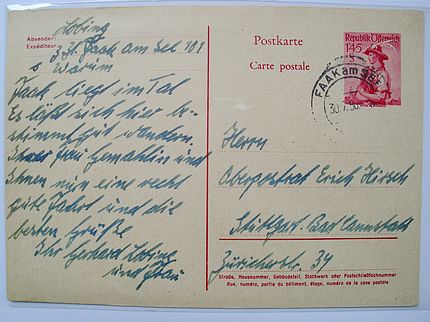 Absender:
Expéditeur:
Lobing
z. Zt. Faak am See 101
Postkarte
Carte postale
Republik Österreich
1.45
FAAK am SEE
Faak liegt im Tal
Es läßt sich hier be-
stimmt gut wandern.
Ihrer Frau Gemahlin und
Ihnen nun eine recht
gute Fahrt und die
besten Grüße
Ihr Gerhard Lobing
und Frau
Herrn
Oberpostrat Erich Hirsch
Stuttgart-Bad Cannstatt
Züricherstr. 34
Straße, Hausnummer, Gebäudeteil, Stockwerk oder Postschließfachnummer
Rue, numéro, partie du bâtiment, étage, numéro de la case postale